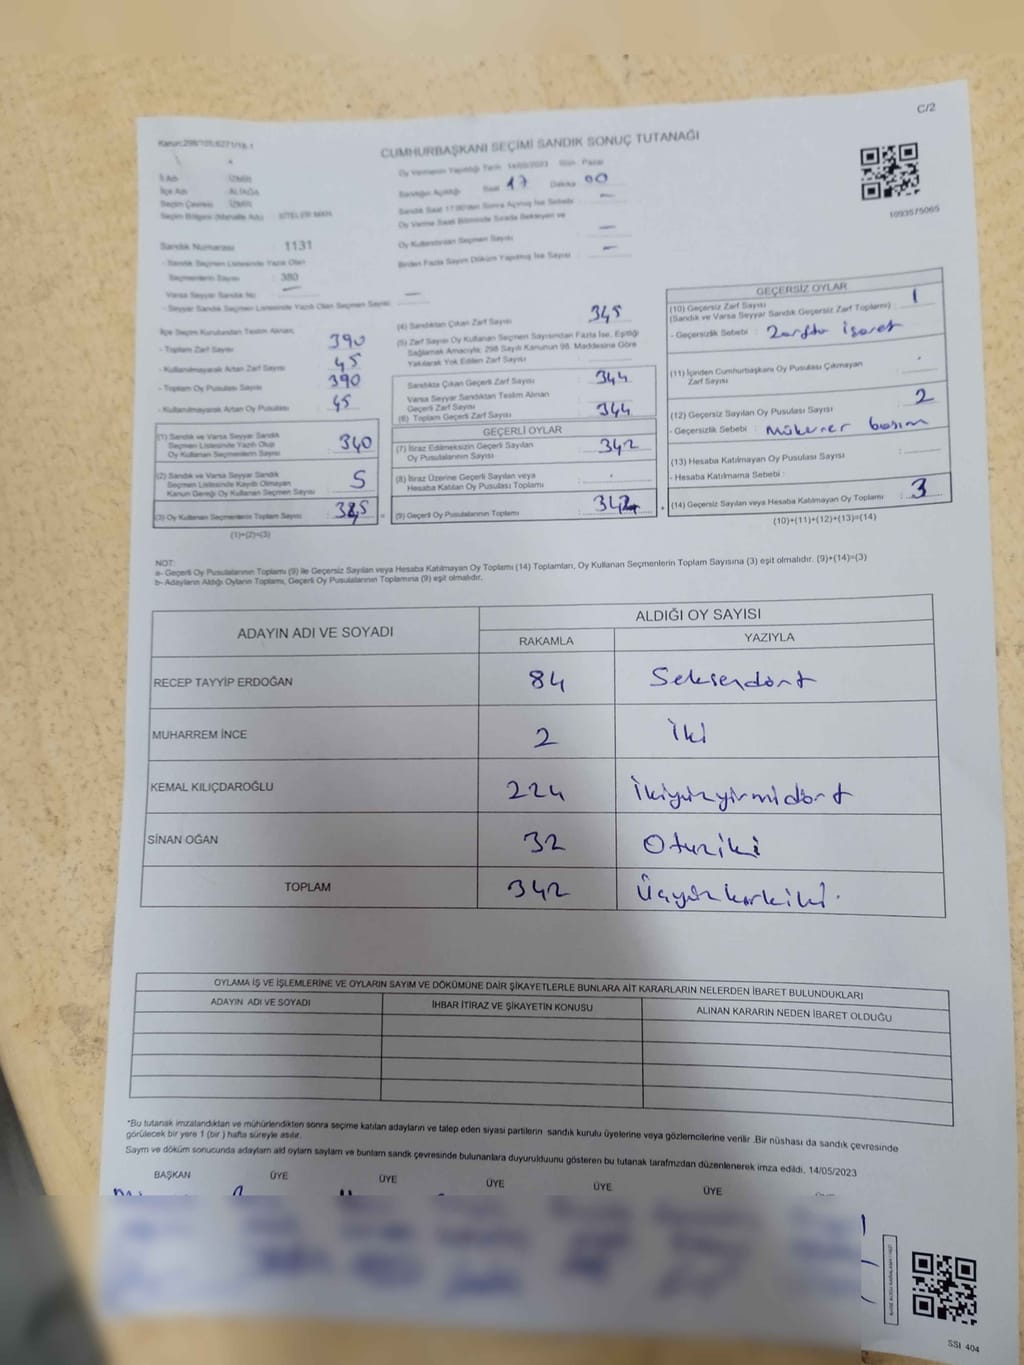 C/2
Kanun:298/105,6271/18.1
CUMHURBAŞKANI SEÇİMİ SANDIK SONUÇ TUTANAĞI
İl Adı : İZMİR
İlçe Adı : ALİAĞA
Seçim Çevresi : İZMİR
Seçim Bölgesi (Mahalle Adı) : SİTELER MAH.
Oy Vermenin Yapıldığı Tarih 14/05/2023 Gün Pazar
Sandığın Açıldığı Saat 17 Dakika 00
Sandık Saat 17.00'den Sonra Açılmış İse Sebebi —
Oy Verme Saati Bitiminde Sırada Bekleyen ve
Oy Kullandırılan Seçmen Sayısı —
Birden Fazla Sayım Döküm Yapılmış İse Sayısı —
1093575065
Sandık Numarası 1131
- Sandık Seçmen Listesinde Yazılı Olan
Seçmenlerin Sayısı : 380
Varsa Seyyar Sandık No : —
- Seyyar Sandık Seçmen Listesinde Yazılı Olan Seçmen Sayısı : —
İlçe Seçim Kurulundan Teslim Alınan;
- Toplam Zarf Sayısı : 390
- Kullanılmayarak Artan Zarf Sayısı : 45
- Toplam Oy Pusulası Sayısı : 390
- Kullanılmayarak Artan Oy Pusulası : 45
(1) Sandık ve Varsa Seyyar Sandık
Seçmen Listesinde Yazılı Olup
Oy Kullanan Seçmenlerin Sayısı : 340
(2) Sandık ve Varsa Seyyar Sandık
Seçmen Listesinde Kayıtlı Olmayan
Kanun Gereği Oy Kullanan Seçmen Sayısı : 5
(3) Oy Kullanan Seçmenlerin Toplam Sayısı : 345 =
(1)+(2)=(3)
(4) Sandıktan Çıkan Zarf Sayısı : 345
(5) Zarf Sayısı Oy Kullanan Seçmen Sayısından Fazla İse, Eşitliği
Sağlamak Amacıyla; 298 Sayılı Kanunun 98. Maddesine Göre
Yakılarak Yok Edilen Zarf Sayısı :
Sandıkta Çıkan Geçerli Zarf Sayısı : 344
Varsa Seyyar Sandıktan Teslim Alınan
Geçerli Zarf Sayısı
(6) Toplam Geçerli Zarf Sayısı : 344
GEÇERLİ OYLAR
(7) İtiraz Edilmeksizin Geçerli Sayılan
Oy Pusulalarının Sayısı : 342
(8) İtiraz Üzerine Geçerli Sayılan veya
Hesaba Katılan Oy Pusulası Toplamı : .
(9) Geçerli Oy Pusulalarının Toplamı : 342 +
GEÇERSİZ OYLAR
(10) Geçersiz Zarf Sayısı : 1
(Sandık ve Varsa Seyyar Sandık Geçersiz Zarf Toplamı)
- Geçersizlik Sebebi : Zarfta işaret
(11) İçinden Cumhurbaşkanı Oy Pusulası Çıkmayan
Zarf Sayısı : .
(12) Geçersiz Sayılan Oy Pusulası Sayısı : 2
- Geçersizlik Sebebi : Mükerrer basım
(13) Hesaba Katılmayan Oy Pusulası Sayısı :
- Hesaba Katılmama Sebebi :
(14) Geçersiz Sayılan veya Hesaba Katılmayan Oy Toplamı : 3
(10)+(11)+(12)+(13)=(14)
NOT:
a- Geçerli Oy Pusulalarının Toplamı (9) ile Geçersiz Sayılan veya Hesaba Katılmayan Oy Toplamı (14) Toplamları, Oy Kullanan Seçmenlerin Toplam Sayısına (3) eşit olmalıdır. (9)+(14)=(3)
b- Adayların Aldığı Oyların Toplamı, Geçerli Oy Pusulalarının Toplamına (9) eşit olmalıdır.
ADAYIN ADI VE SOYADI ALDIĞI OY SAYISI
RAKAMLA YAZIYLA
RECEP TAYYİP ERDOĞAN 84 Seksendört
MUHARREM İNCE 2 İki
KEMAL KILIÇDAROĞLU 224 İkiyüzyirmidört
SİNAN OĞAN 32 Otuziki
TOPLAM 342 Üçyüzkırkiki.
OYLAMA İŞ VE İŞLEMLERİNE VE OYLARIN SAYIM VE DÖKÜMÜNE DAİR ŞİKAYETLERLE BUNLARA AİT KARARLARIN NELERDEN İBARET BULUNDUKLARI
ADAYIN ADI VE SOYADI İHBAR İTİRAZ VE ŞİKAYETİN KONUSU ALINAN KARARIN NEDEN İBARET OLDUĞU
*Bu tutanak imzalandıktan ve mühürlendikten sonra seçime katılan adayların ve talep eden siyasi partilerin sandık kurulu üyelerine veya gözlemcilerine verilir .Bir nüshası da sandık çevresinde
görülecek bir yere 1 (bir ) hafta süreyle asılır.
Sayım ve döküm sonucunda adayların ald oyların saylam ve bunlam sandk çevresinde bulunanlara duyurulduunu gösteren bu tutanak tarafmzdan düzenlenerek imza edildi. 14/05/2023
BAŞKAN ÜYE ÜYE ÜYE ÜYE ÜYE
SSI 404